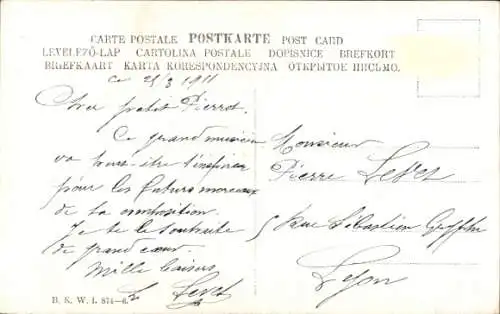 CARTE POSTALE POSTKARTE POST CARD
LEVELEZŐ-LAP CARTOLINA POSTALE DOPISNICE BREFKORT
BRIEFKAART KARTA KORESPONDENCYJNA ОТКРЫТОЕ ПИСЬМО.
Ce 21/3 1911
Cher petit Pierrot.
Ce grand musicien
va t'inspirer
pour les futurs morceaux
de ta composition.
Je te le souhaite
de grand cœur.
Mille baisers
L. Levet
Monsieur
Pierre Levet
5 Rue Sébastien Gryphe
Lyon
B. K. W. I. 874-6.